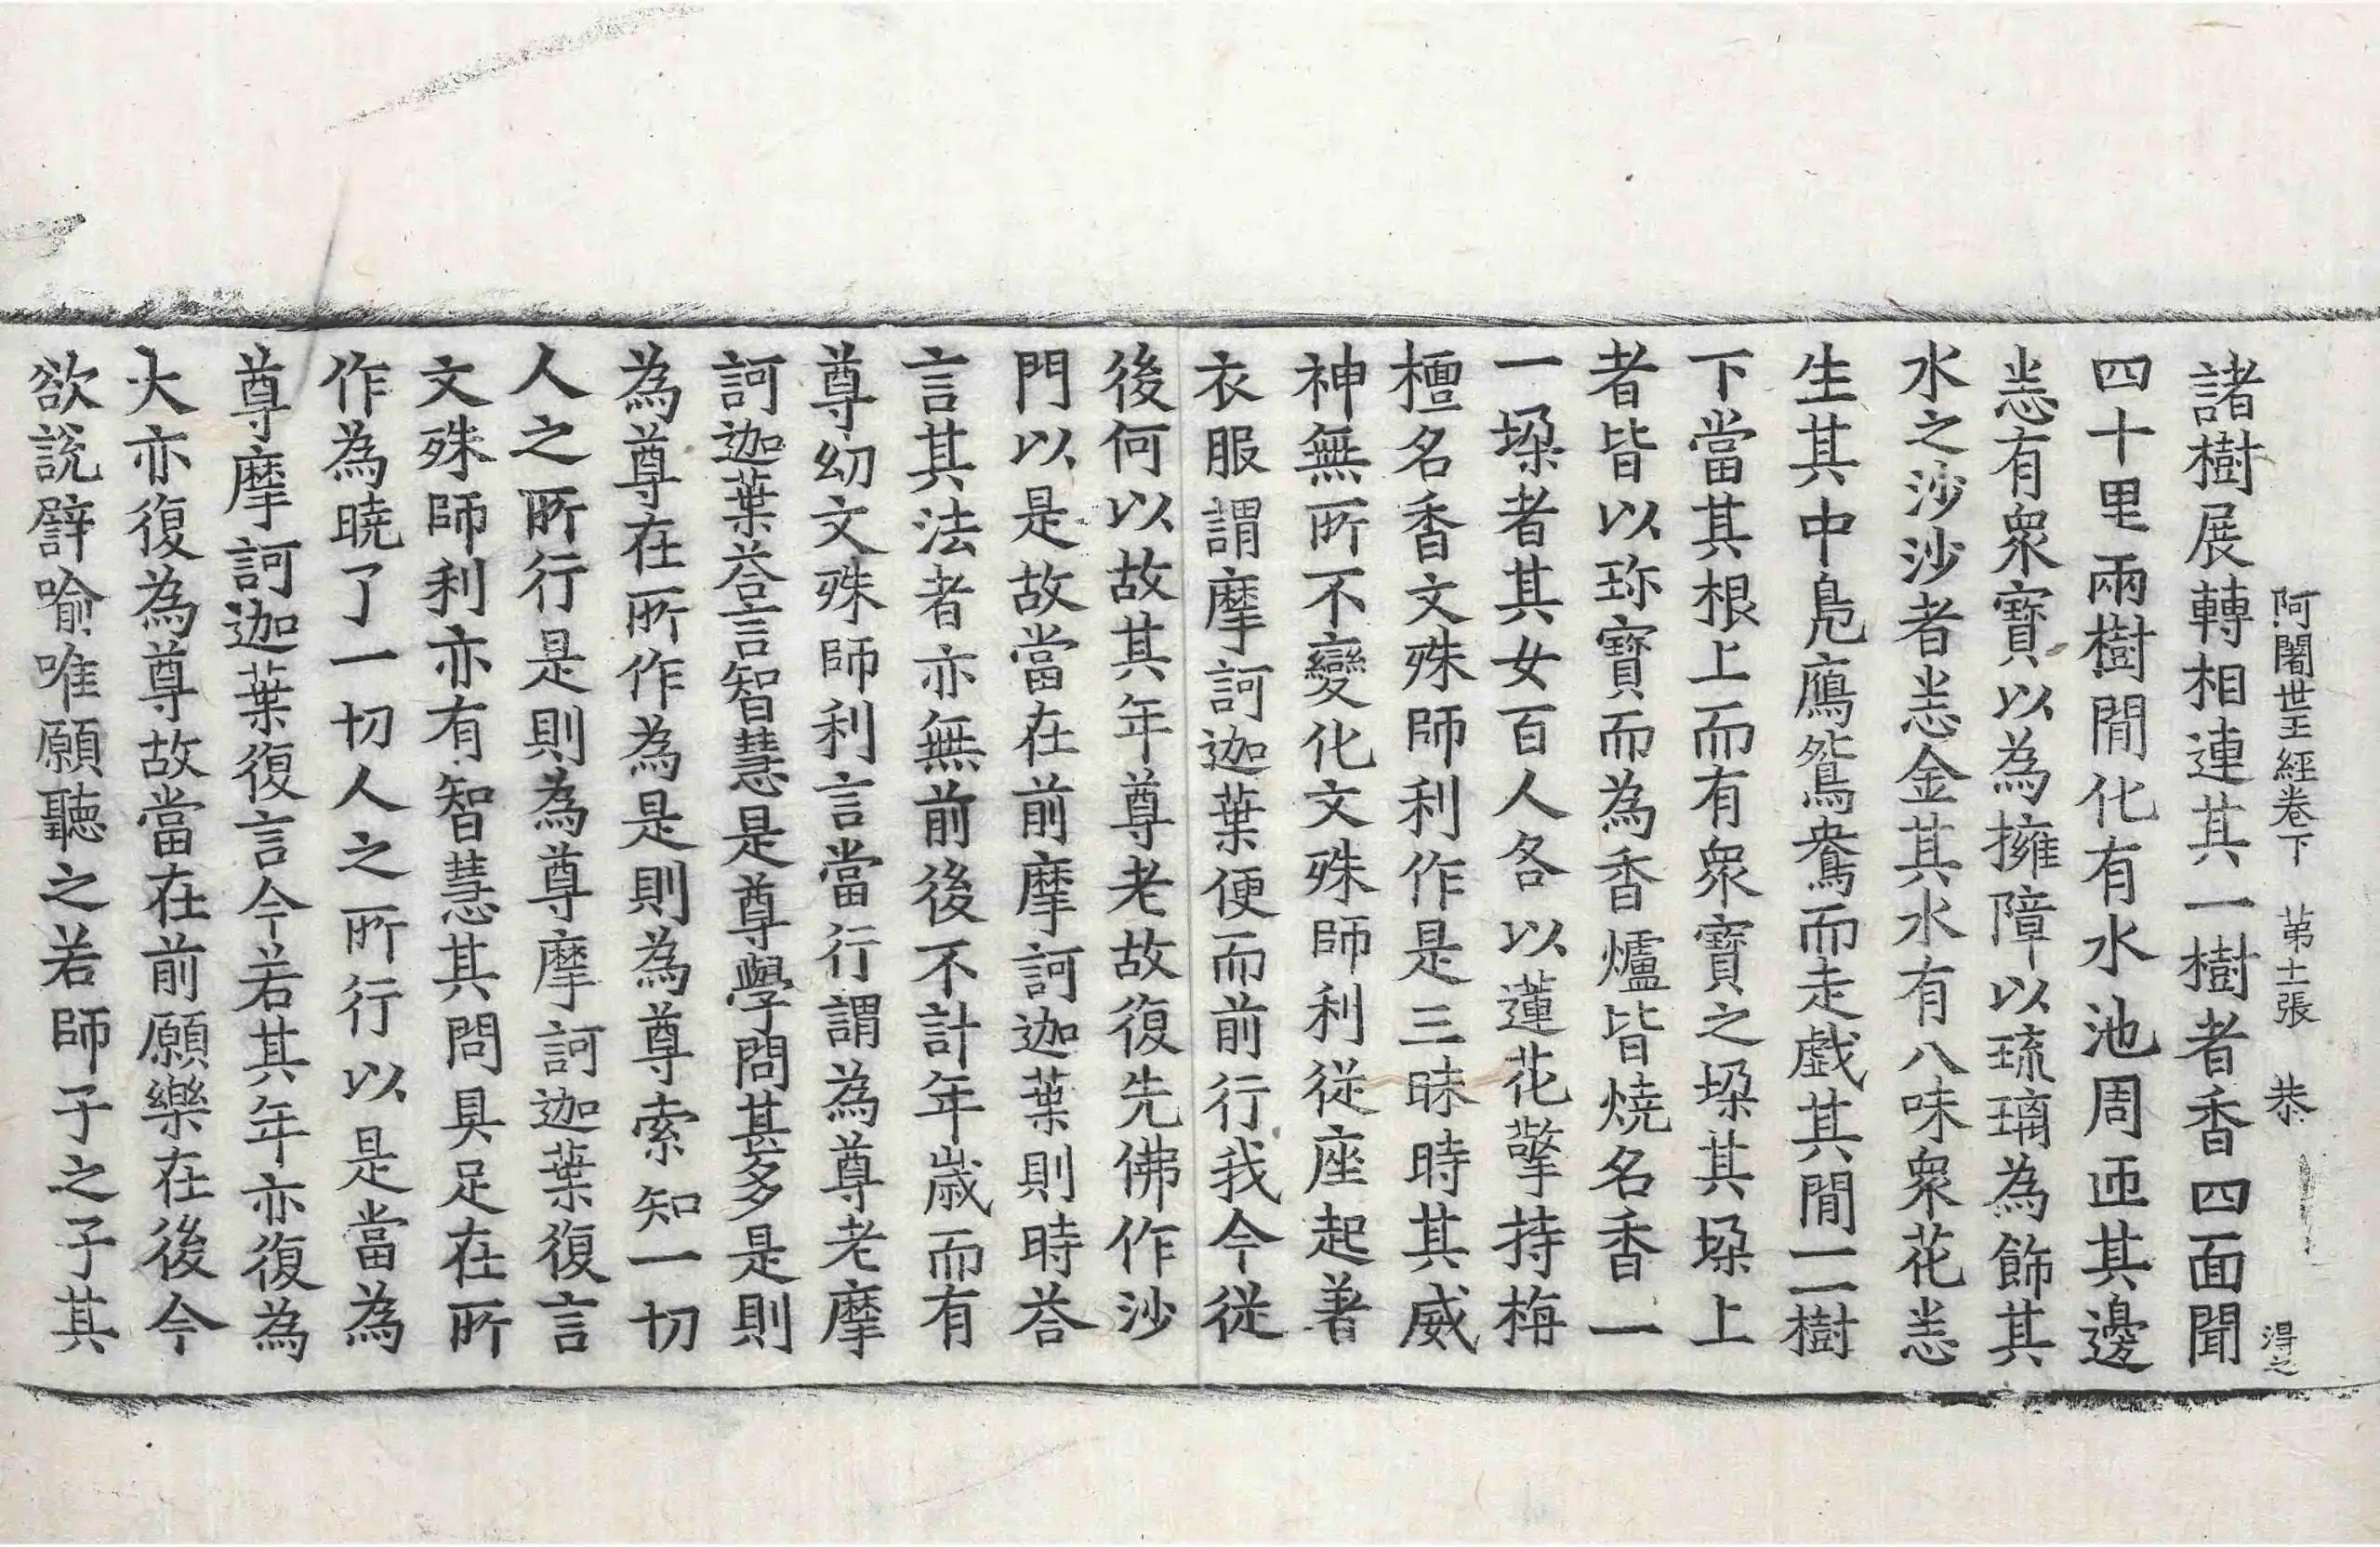 阿闍世王經卷下　第十二張　恭　得之
諸樹展轉相連其一樹者香四面聞
四十里兩樹閒化有水池周匝其邊
悉有衆寶以為擁障以琉璃為飾其
水之沙沙者悉金其水有八味衆花悉
生其中鳧鴈鴛鴦而走戯其閒一一樹
下當其根上而有衆寶之垜其垜上
者皆以珎寶而為香爐皆燒名香一
一垜者其女百人各以蓮花擎持栴
檀名香文殊師利作是三昧時其威
神無所不變化文殊師利從座起著
衣服謂摩訶迦葉便而前行我今從
後何以故其年尊老故復先佛作沙
門以是故當在前摩訶迦葉則時荅
言其法者亦無前後不計年歳而有
尊幼文殊師利言當行謂為尊老摩
訶迦葉荅言智慧是尊學問甚多是則
為尊在所作為是則為尊索知一切
人之所行是則為尊摩訶迦葉復言
文殊師利亦有智慧其問具足在所
作為曉了一切人之所行以是當為
尊摩訶迦葉復言今若其年亦復為
大亦復為尊故當在前願樂在後今
欲說譬喻唯願聽之若師子之子其